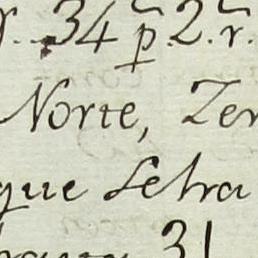 34 p̃ 2. r̃.
Norte, Zer
que Letra
31